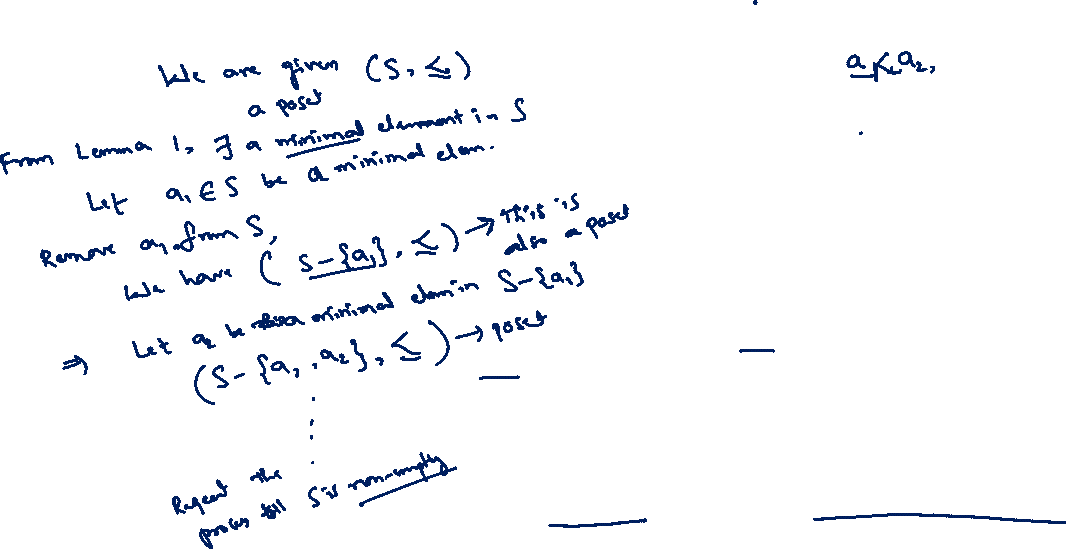 We are given (S, ≤)
a poset
a ≤ a₂,
From Lemma 1, ∃ a minimal element in S
Let a₁ ∈ S be a minimal elem.
Remove a₁ from S,
We have (S-{a₁}, ≤) → This is
also a poset
⇒ Let a₂ be a minimal elem in S-{a₁}
(S-{a₁, a₂}, ≤) → poset
Repeat the
process till S is non-empty